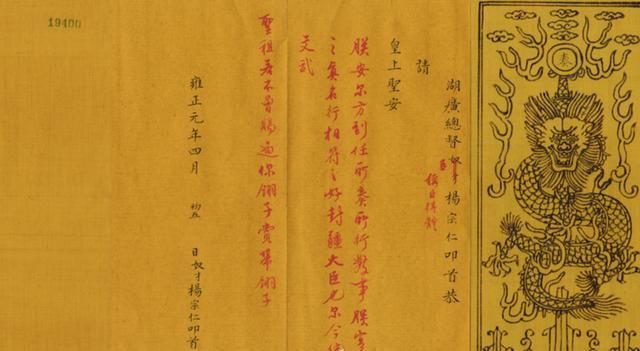 奏
湖廣總督奴才楊宗仁叩首恭
請
皇上聖安
朕安尔方到任所奏所行數事朕實
之真名行相符之好封疆大臣也尔今
文武
聖祖若不曾賜過你翎子賞帶翎子
雍正元年四月 初五 日奴才楊宗仁叩首
19400